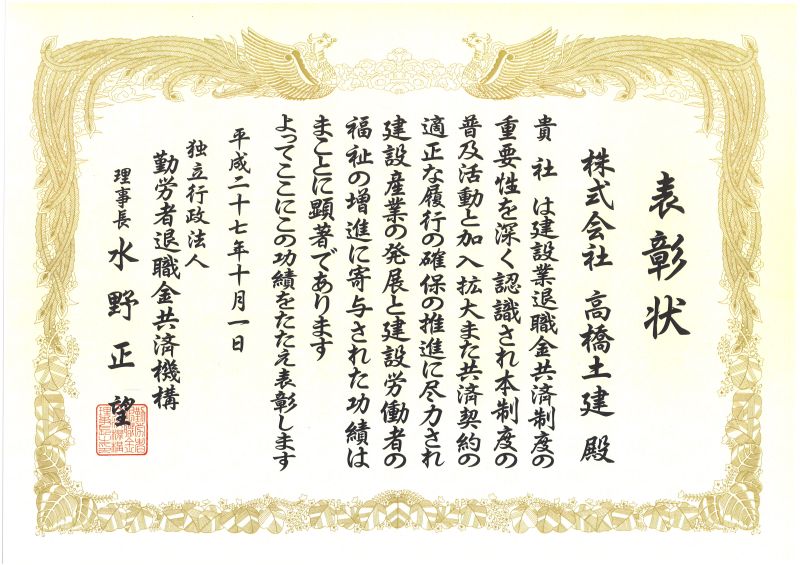 表彰状
株式会社 高橋土建 殿
貴社は建設業退職金共済制度の
重要性を深く認識され本制度の
普及活動と加入拡大また共済契約の
適正な履行の確保の推進に尽力され
建設産業の発展と建設労働者の
福祉の増進に寄与された功績は
まことに顕著であります
よってここにこの功績をたたえ表彰します
平成二十七年十月一日
独立行政法人
勤労者退職金共済機構
理事長 水野正望